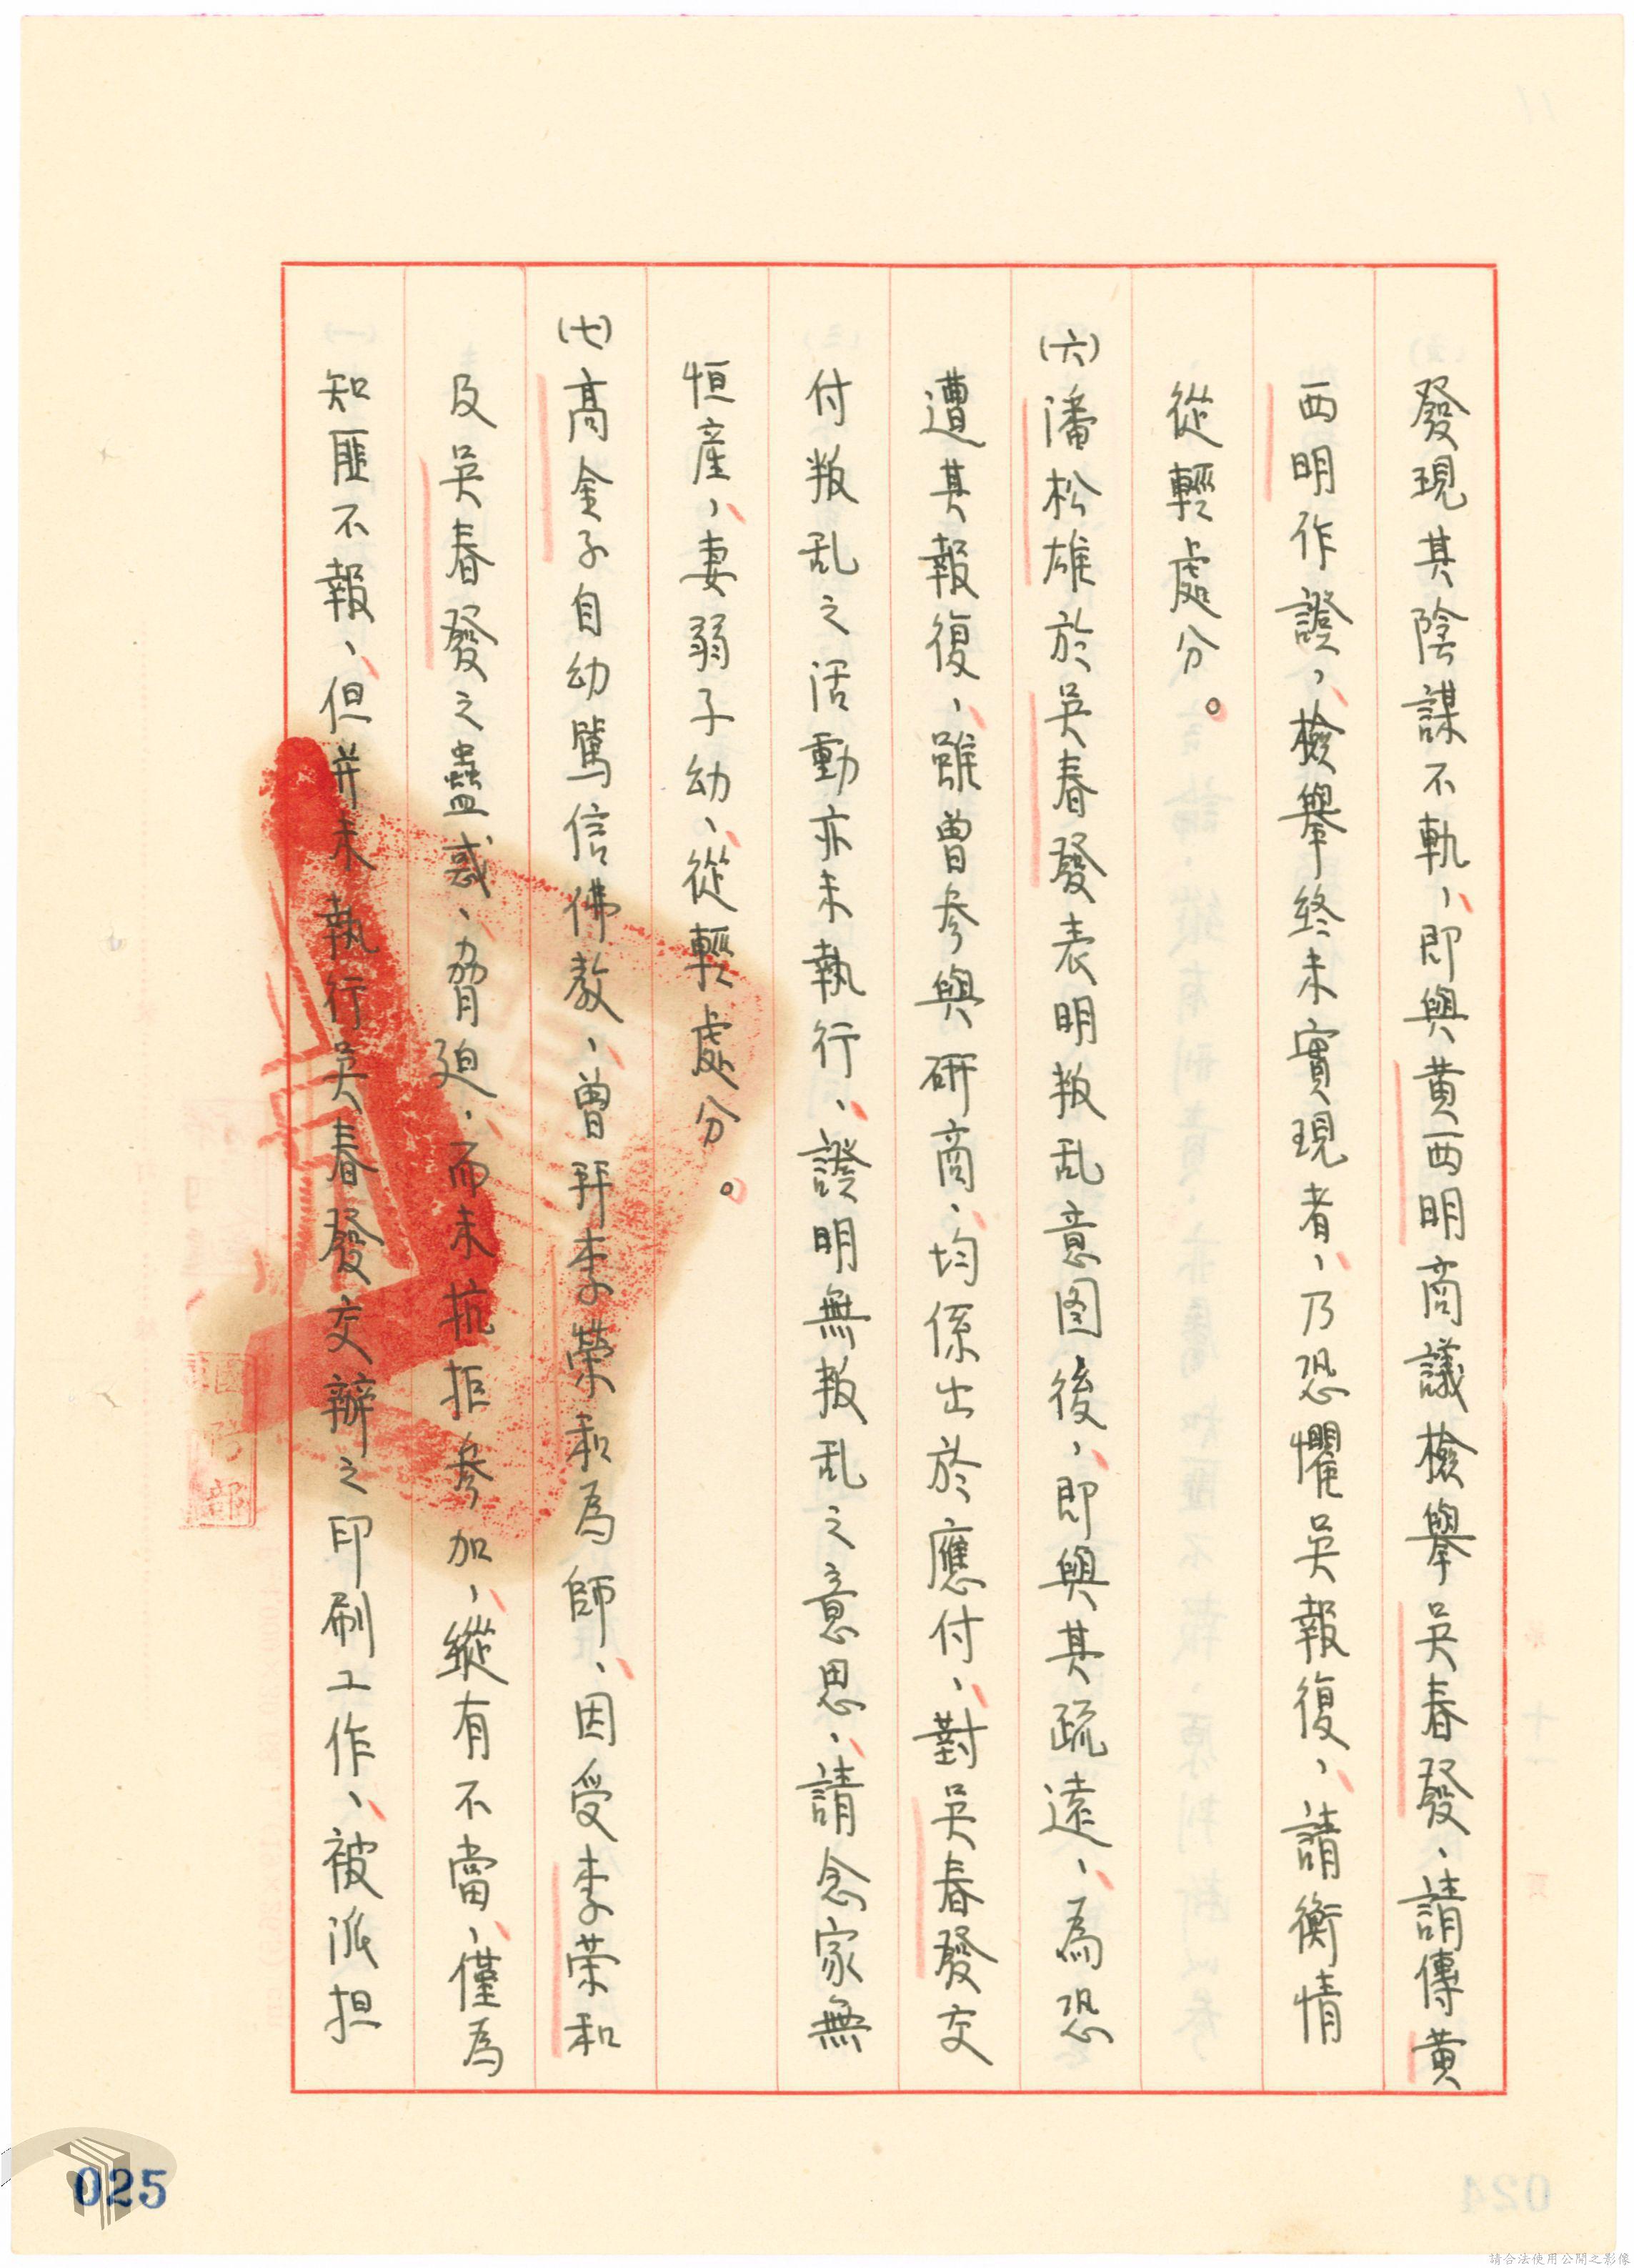 發現其陰謀不軌、即與黃西明商議檢舉吳春發、請傳黃
西明作證、檢舉終未實現者、乃恐懼吳報復、請衡情
從輕處分。
(六)潘松雄於吳春發表明叛乱意图後、即與其疏遠、為恐
遭其報復、雖曾參與研商、均係出於應付、對吳春發交
付叛乱之活動亦未執行、證明無叛乱之意思、請念家無
恒產、妻弱子幼、從輕處分。
(七)高金子自幼篤信佛教、曾拜李榮和為師、因受李荣和
及吳春發之蠱惑、脅迫、而未抗拒參加、縱有不當、僅為
知匪不報、但并未執行吳春發交辦之印刷工作、被派担
部
025
請合法使用公開之影像